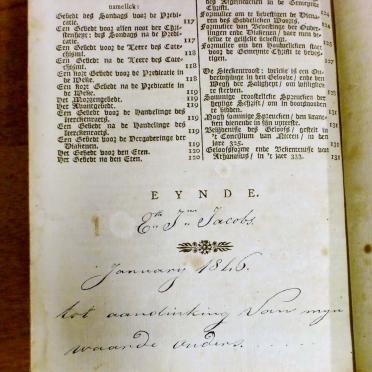 namelick:
Gebedt des Sondags voor de Predicatie. 117
Een Gebedt voor alien voor der Christenheyt: des Sondags na de Predicatie. 117
Een Gebedt voor de Leere des Catechismi. 118
Een Gebedt na de Leere des Catechismi. 118
Een kort Gebedt voor de Predicatie in de Weke. 118
Een kort Gebedt na de Predicatie in de Weke. 119
Het Morgengebedt. 119
Het Avontgebedt. 119
Een Gebedt voor de Handelinge des kerckenraets. 119
Een Gebedt na de Handelinge des kerckenraets. 119
Een Gebedt voor de Vergaderinge der Diakenen. 119
Het Gebedt voor den Eten. 120
Het Gebedt na den Eten. 120
der Afgesnedenen in de Gemeynte Christi. 124
Formulier om te bevestigen de Dienaren des Goddelicken Woorts.
Formulier om bevestinge der Ouderlingen ende Diakenen / daer men deselve te gelijck bevestight.
Formulier om den Houwelicken staet voor de Gemeynte Christi te bevestigen.
De Sieckentroost: welcke is een Onderwijsinge in den Geloove / ende den Wegh der Saligheyt / om willighlick te sterven.
Sommige troostelicke Spreucken der heylige Schrift / om in doodsnooden te bidden.
Noch sommige Spreucken / den krancken dienende in sijn uyterste.
Belijdenisse des Geloofs / gestelt in 't Concilium van Niceen / in den jare 325. 131
Geloofsforme ende Bekentenisse van Athanasius / in 't jaer 333. 131
EYNDE.
Jacobs.
January 1846.
tot aandinking van myn
waarde ouders.......